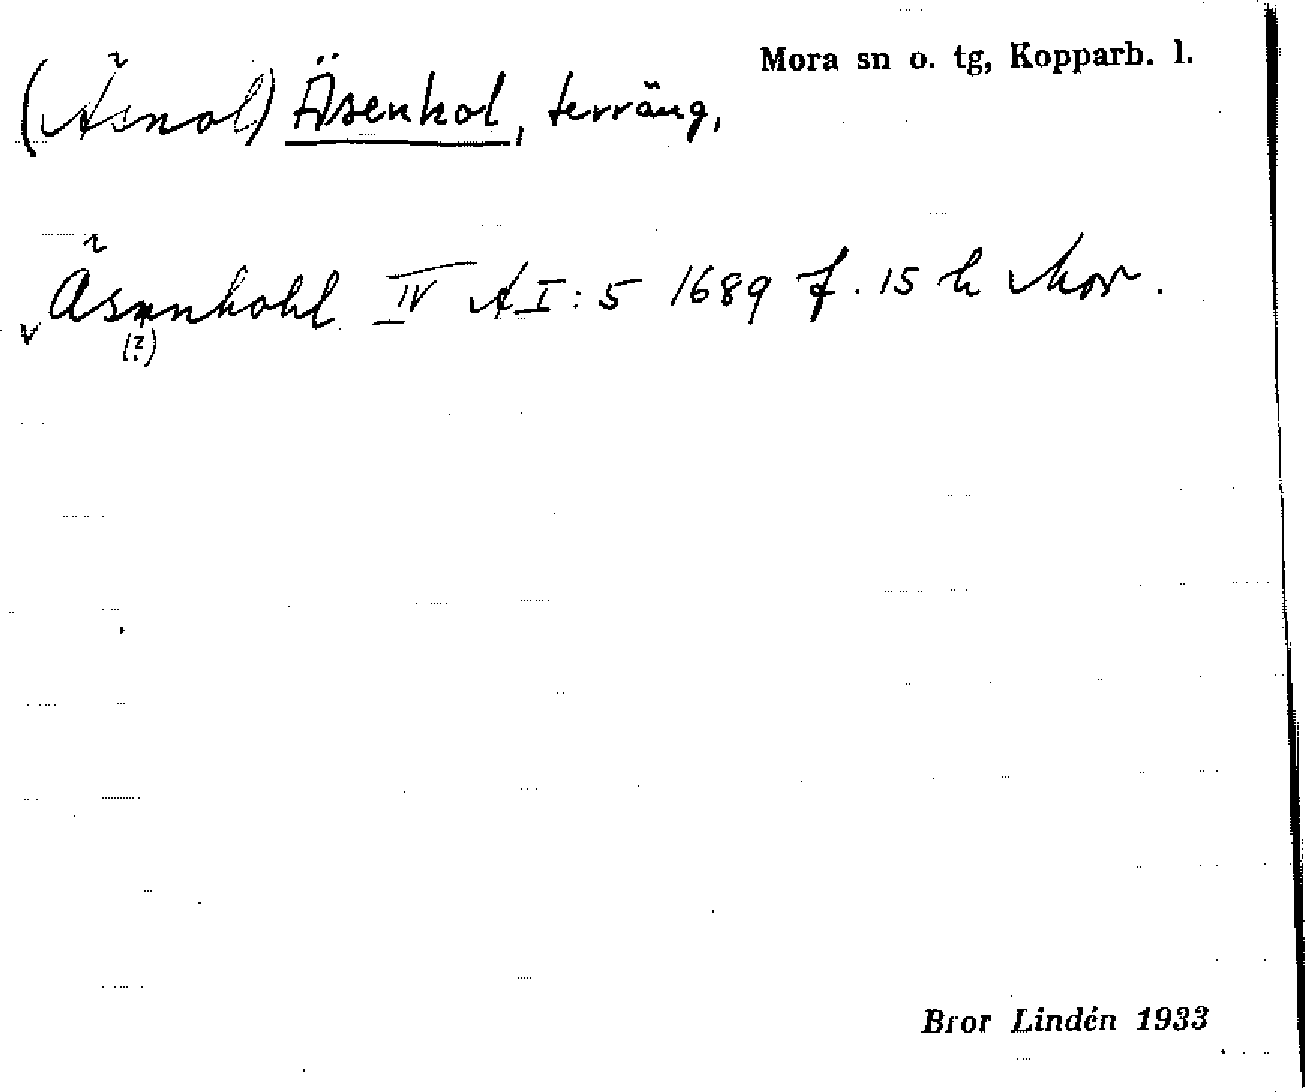 Mora sn o. tg, Kopparb. l.
(Äsnol) Äsenhol, terräng,
Äsnnhohl IV A I: 5 1689 f. 15 h Mor.
(?)
Bror Lindén 1933